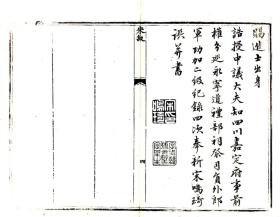 賜進士出身
誥授中議大夫知四川嘉定府事前
權分巡永寧道禮部祠祭司員外郎
軍功加二級紀錄四次奉新宋鳴琦
譔并書
四